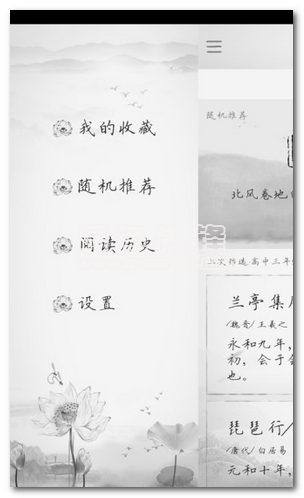 我的收藏
随机推荐
阅读历史
设置
随机推荐
北风卷地
高中三年
兰亭集
/魏晋/ 王羲之
永和九年，
初，会于会
也。
琵琶行/
/唐代/ 白居易
元和十年，